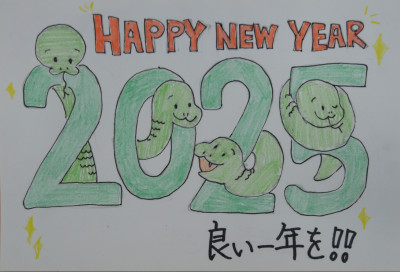 HAPPY NEW YEAR
2025
良い一年を!!